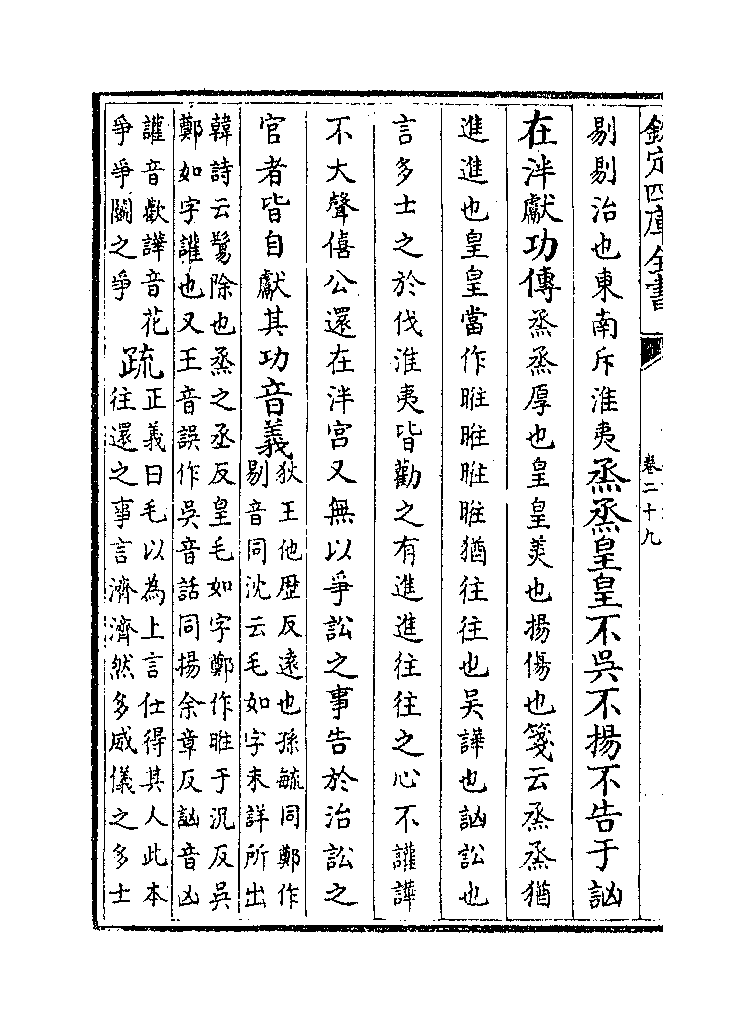 欽定四庫全書
卷二十九
剔剔治也東南斥淮夷烝烝皇皇不吳不揚不告于訩
在泮獻功傳烝烝厚也皇皇美也揚傷也箋云烝烝猶
進進也皇皇當作暀暀暀暀猶往往也吳譁也訩訟也
言多士之於伐淮夷皆勸之有進進往往之心不讙譁
不大聲僖公還在泮宮又無以爭訟之事告於治訟之
官者皆自獻其功音義
狄王他歴反遠也孫毓同鄭作
剔音同沈云毛如字未詳所出
韓詩云鬄除也烝之丞反皇毛如字鄭作暀于況反吳
鄭如字讙也又王音誤作吳音話同揚余章反訩音凶
讙音歡譁音花
爭爭鬭之爭
疏
正義曰毛以為上言仕得其人此本
往還之事言濟濟然多威儀之多士